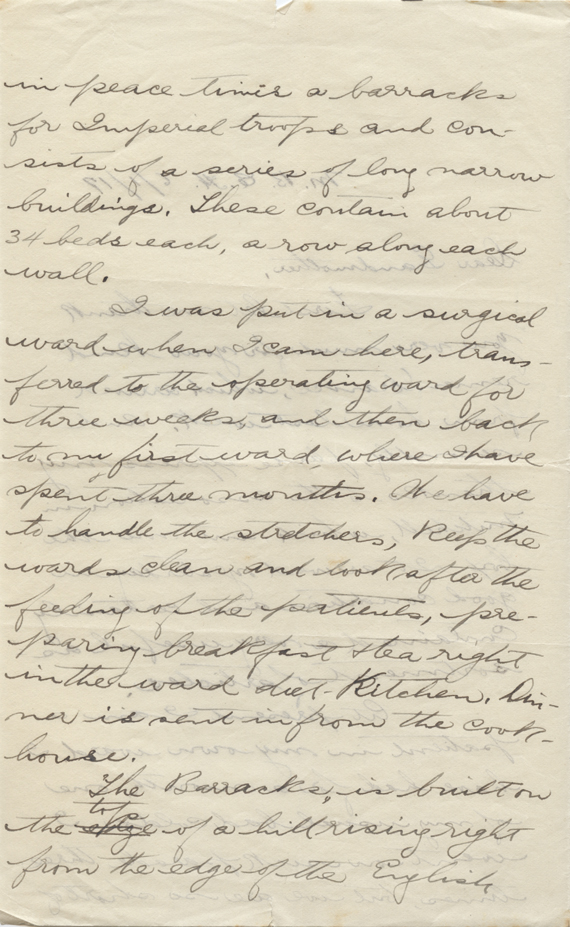 in peace times a barracks
for Imperial troops and con-
sists of a series of long narrow
buildings. These contain about
34 beds each, a row along each
wall.
I was put in a surgical
ward when I cam here, trans-
ferred to the operating ward for
three weeks and then back
to my first ward where I have
spent three months. We have
to handle the stretchers, Keep the
wards clean and look after the
feeding of the patients, pre-
paring breakfast & tea right
in the ward diet-Kitchen. Din-
ner is sent in from the cook-
house.
The Barracks, is built on
top
the edge of a hill rising right
from the edge of the English